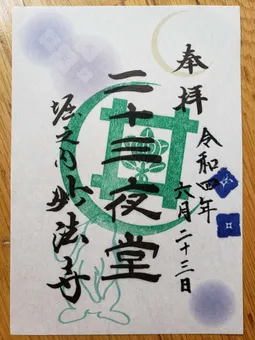 奉拝
令和四年
六月二十三日
二十三夜堂
堀之内妙法寺